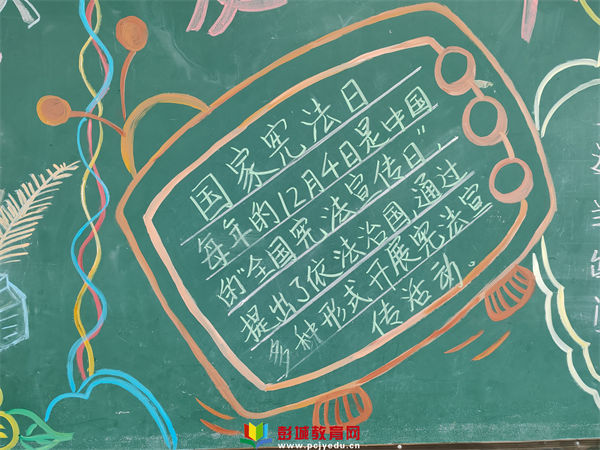 国家宪法日
每年的12月4日是中国
的"全国宪法宣传日",
提出了依法治国,通过
多种形式开展宪法宣
传活动。
彭城教育网
www.pcjyedu.cn